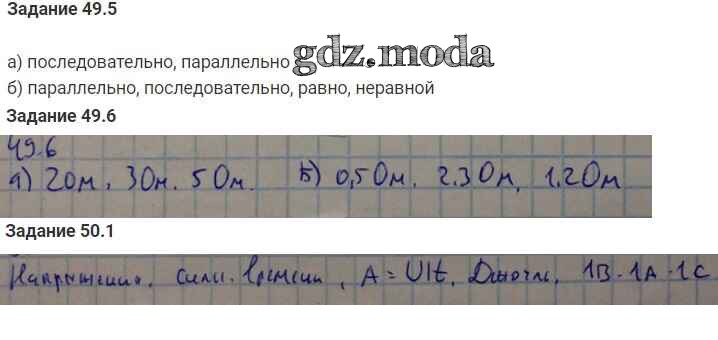 Задание 49.5
а) последовательно, параллельно gdz.moda
б) параллельно, последовательно, равно, неравной
Задание 49.6
49.6
а) 2 Ом, 3 Ом. 5 Ом. Б) 0,5 Ом. 2.3 Ом, 1.2 Ом
Задание 50.1
Напряжение, силы. времени, A = UIt, Джоуль, 1В·1А·1С